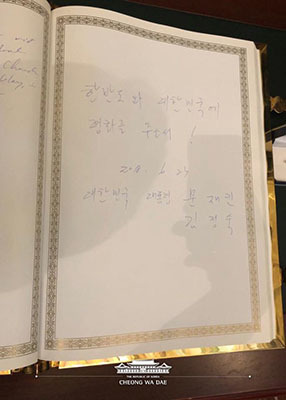 한반도와 대한민국에
평화를 주소서!
6. 23
대한민국 대통령 문재인
김정숙
THE REPUBLIC OF KOREA
CHEONG WA DAE